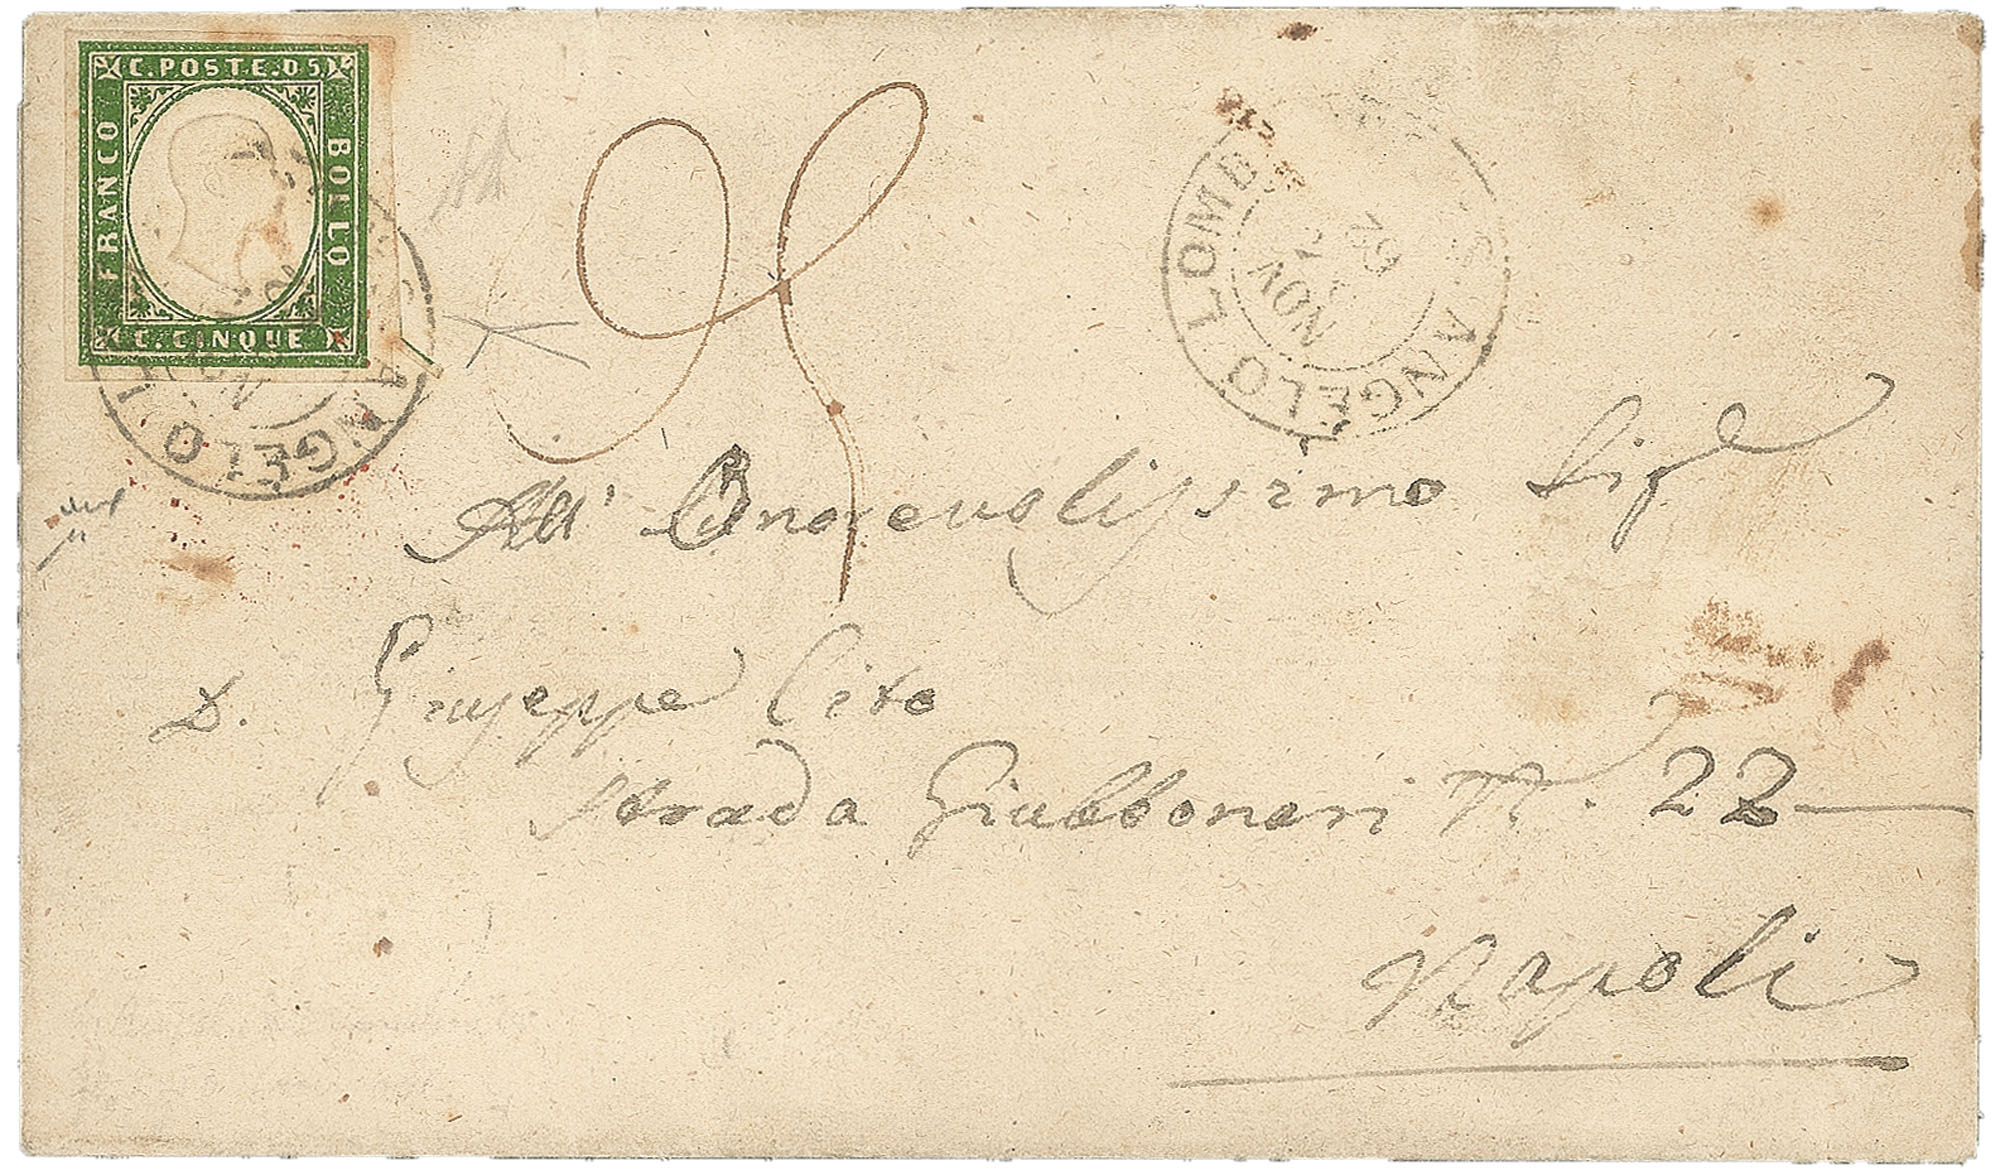 C. POSTE. D 5.
FRANCO
BOLLO
C. CINQUE
ANGELO
S. ANGELO LOMB
2
NOV
62
All' Onorevolissimo Sigr
D. Giuseppe Cito
Strada Giubbonari N. 22
Napoli